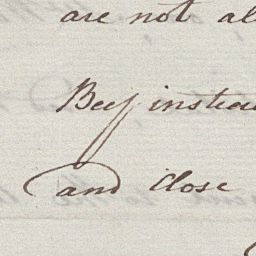 are not al
Beef instea
and close